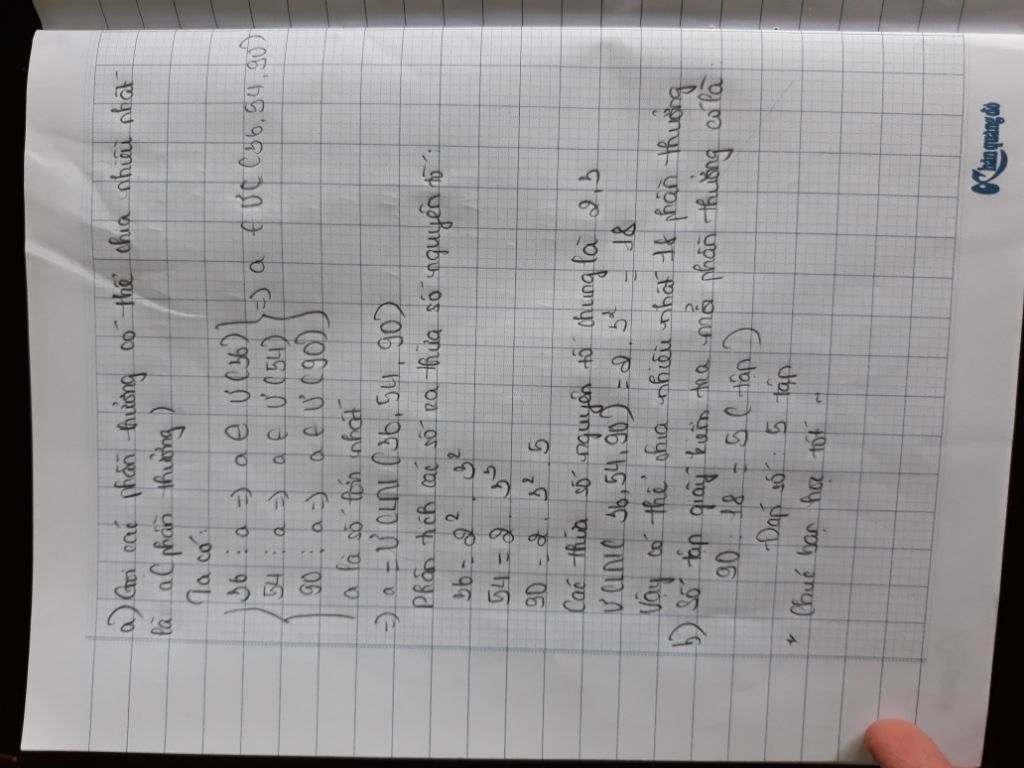 a) Gọi các phần thưởng có thể chia nhiều nhất
là a (phần thưởng)
Ta có:
36 ⋮ a => a ∈ Ư(36)
54 ⋮ a => a ∈ Ư(54) => a ∈ ƯC(36, 54, 90)
90 ⋮ a => a ∈ Ư(90)
a là số lớn nhất
=> a = ƯCLN(36, 54, 90)
Phân tích các số ra thừa số nguyên tố:
36 = 2² . 3²
54 = 2 . 3³
90 = 2 . 3² . 5
Các thừa số nguyên tố chung là 2, 3
ƯCLN(36, 54, 90) = 2 . 3² = 18
Vậy có thể chia nhiều nhất 18 phần thưởng
b) Số tập giấy kiểm tra mỗi phần thưởng có là:
90 : 18 = 5 (tập)
Đáp số: 5 tập
* Chúc bạn học tốt ~